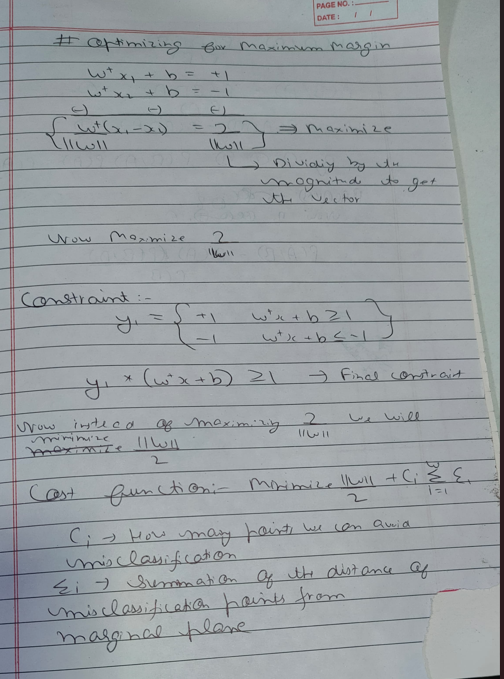 PAGE NO.:
DATE: / /
# optimizing for maximum margin
wᵗx₁ + b = +1
wᵗx₂ + b = -1
(-) (-) (-)
{ wᵗ(x₁-x₂)/||w|| = 2/||w|| } ⇒ maximize
↳ Dividiy by the
magnitud to get
the vector
Now maximize 2/||w||
Constraint :-
yᵢ = { +1 wᵗx + b ≥ 1
-1 wᵗx + b ≤ -1 }
yᵢ * (wᵗx + b) ≥ 1 → Final constraint
Now insted of maximizing 2/||w|| we will
minimize
maximize ||w||/2
Cost function:- Minimize ||w||/2 + Cᵢ Σᵢ₌₁ⁿ Σᵢ
Cᵢ → How many points we can avoid
misclassification
Σᵢ → Summation of the distance of
misclassification points from
marginal plane